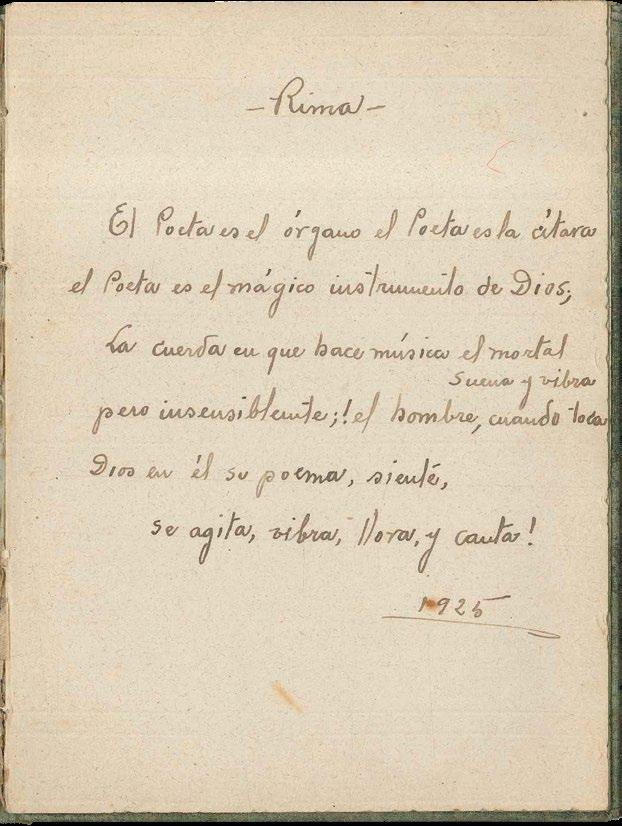 - Rima -
El Poeta es el órgano el Poeta es la cítara
el Poeta es el mágico instrumento de Dios;
La cuerda en que hace música el mortal
suena y vibra
pero insensiblemte;! el hombre, cuando toca
Dios en él su poema, siente,
se agita, vibra, llora, y canta!
1925